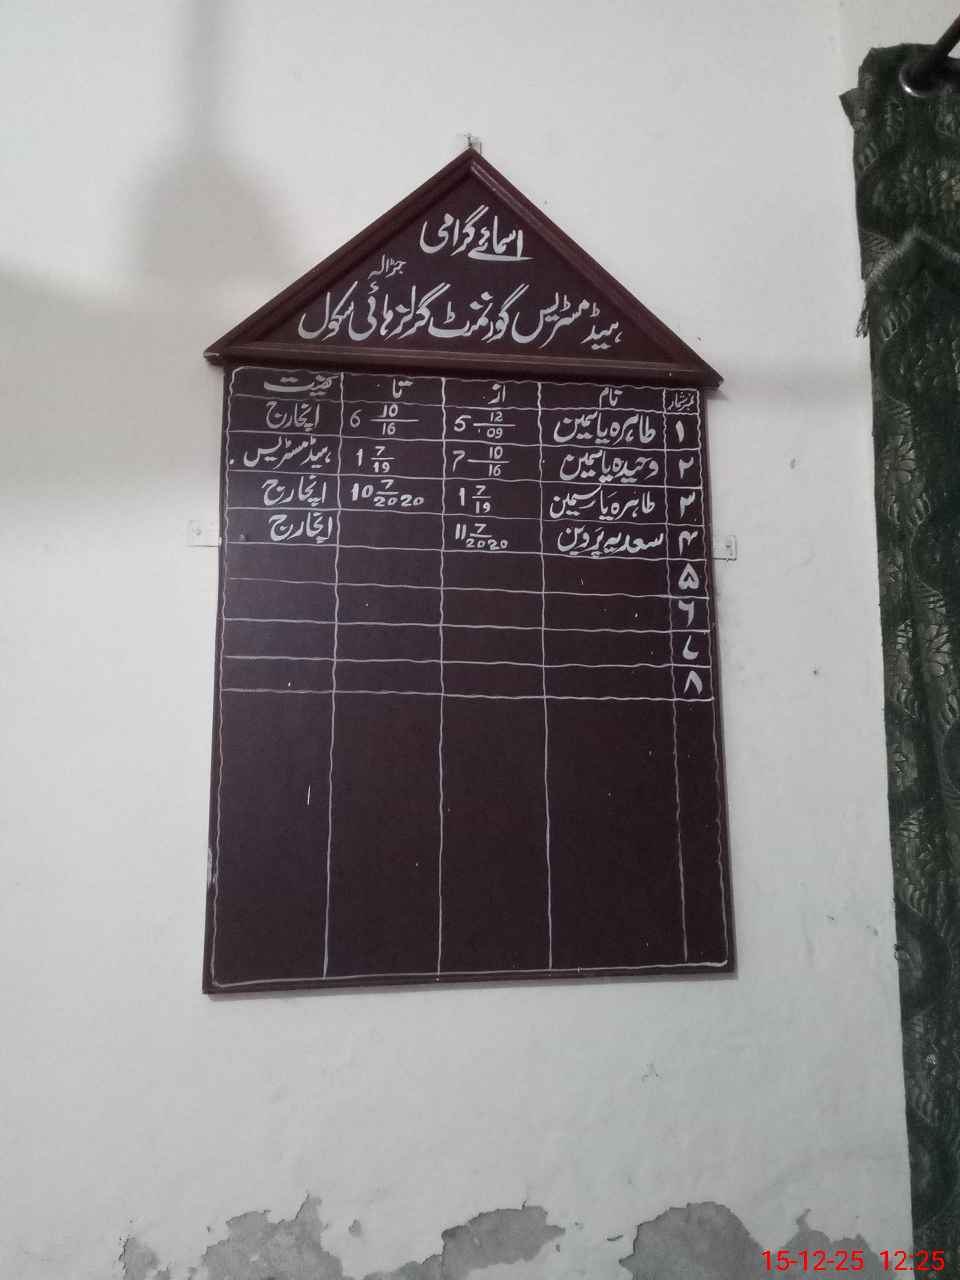 اسمائے گرامی
جڑالہ
ہیڈ مسٹریس گورنمنٹ گرلز ہائی سکول
نمبر شمار نام از تا کیفیت
۱ طاہرہ یاسمین 5 12/09 6 10/16 انچارج
۲ وحیدہ یاسمین 7 10/16 1 7/19 ہیڈ مسٹریس
۳ طاہرہ یاسمین 1 7/19 10 7/2020 انچارج
۴ سعدیہ پروین 11 7/2020 انچارج
۵
۶
۷
۸
15-12-25 12:25